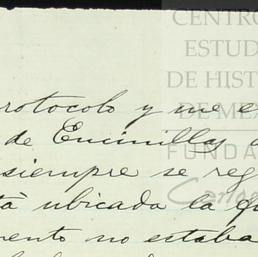 CENTRO
ESTUD
DE HIST
DE ME
FUNDA
Carlos
rotocolo y me e
de Encinillas
siempre se reg
tà ubicada la
mento no estaba